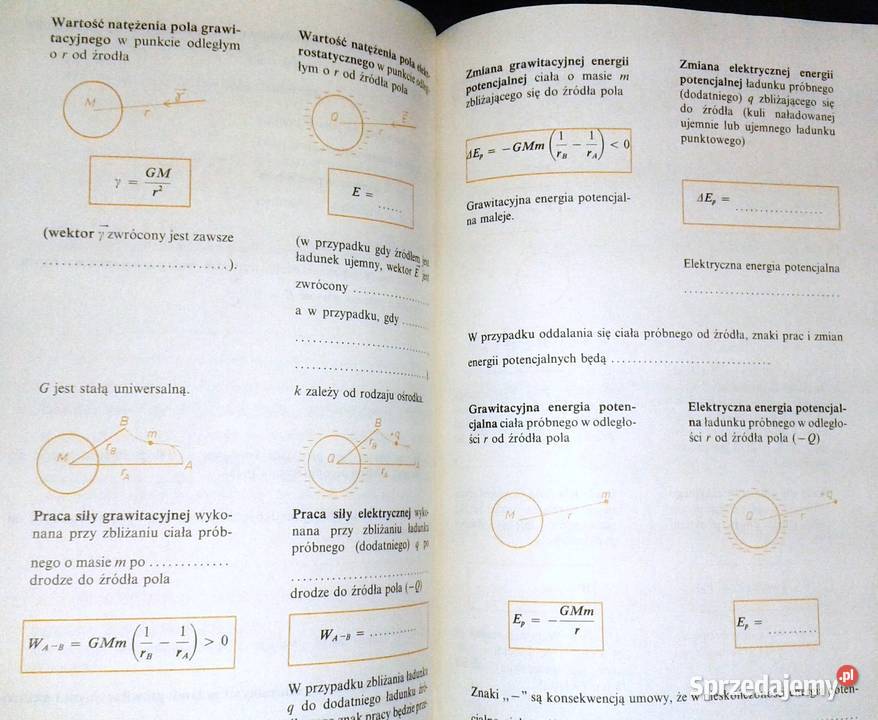 Wartość natężenia pola grawi-
tacyjnego w punkcie odległym
o r od źrodła
M
r
γ
γ = GM / r²
(wektor γ zwrócony jest zawsze
............................ ).
G jest stałą uniwersalną.
B
m
M
r_B
r_A
A
Praca siły grawitacyjnej wyko-
nana przy zbliżaniu ciała prób-
nego o masie m po .............
drodze do źródła pola
W_A-B = GMm (1/r_B − 1/r_A) > 0
Wartość natężenia pola elekt-
rostatycznego w punkcie
łym o r od źródła pola
Q
r
E
E = ......
(w przypadku gdy źródłem jest
ładunek ujemny, wektor E jest
zwrócony ............
a w przypadku, gdy ......
.....................
..................... )
k zależy od rodzaju ośrodka.
B
+q
Q
r_B
r_A
A
Praca siły elektrycznej wyko-
nana przy zbliżaniu ładunku
próbnego (dodatniego) q po
.....................
drodze do źródła pola (−Q)
W_A-B = ...........
W przypadku zbliżania ładunku
q do dodatniego ładunku
znak pracy będzie
Zmiana grawitacyjnej energii
potencjalnej ciała o masie m
zbliżającego się do źródła pola
ΔE_p = −GMm (1/r_B − 1/r_A) < 0
Grawitacyjna energia potencjal-
na maleje.
Zmiana elektrycznej energii
potencjalnej ładunku próbnego
(dodatniego) q zbliżającego się
do źródła (kuli naładowanej
ujemnie lub ujemnego ładunku
punktowego)
ΔE_p = ................
Elektryczna energia potencjalna
........................
W przypadku oddalania się ciała próbnego od źródła, znaki prac i zmian
energii potencjalnych będą ..........................
Grawitacyjna energia poten-
cjalna ciała próbnego w odległo-
ści r od źródła pola
M
r
m
E_p = − GMm / r
Elektryczna energia potencjal-
na ładunku próbnego w odległo-
ści r od źródła pola (−Q)
Q
r
+q
E_p = .........
Znaki „−” są konsekwencją umowy, że w nieskończoności energia poten-
Sprzedajemy.pl